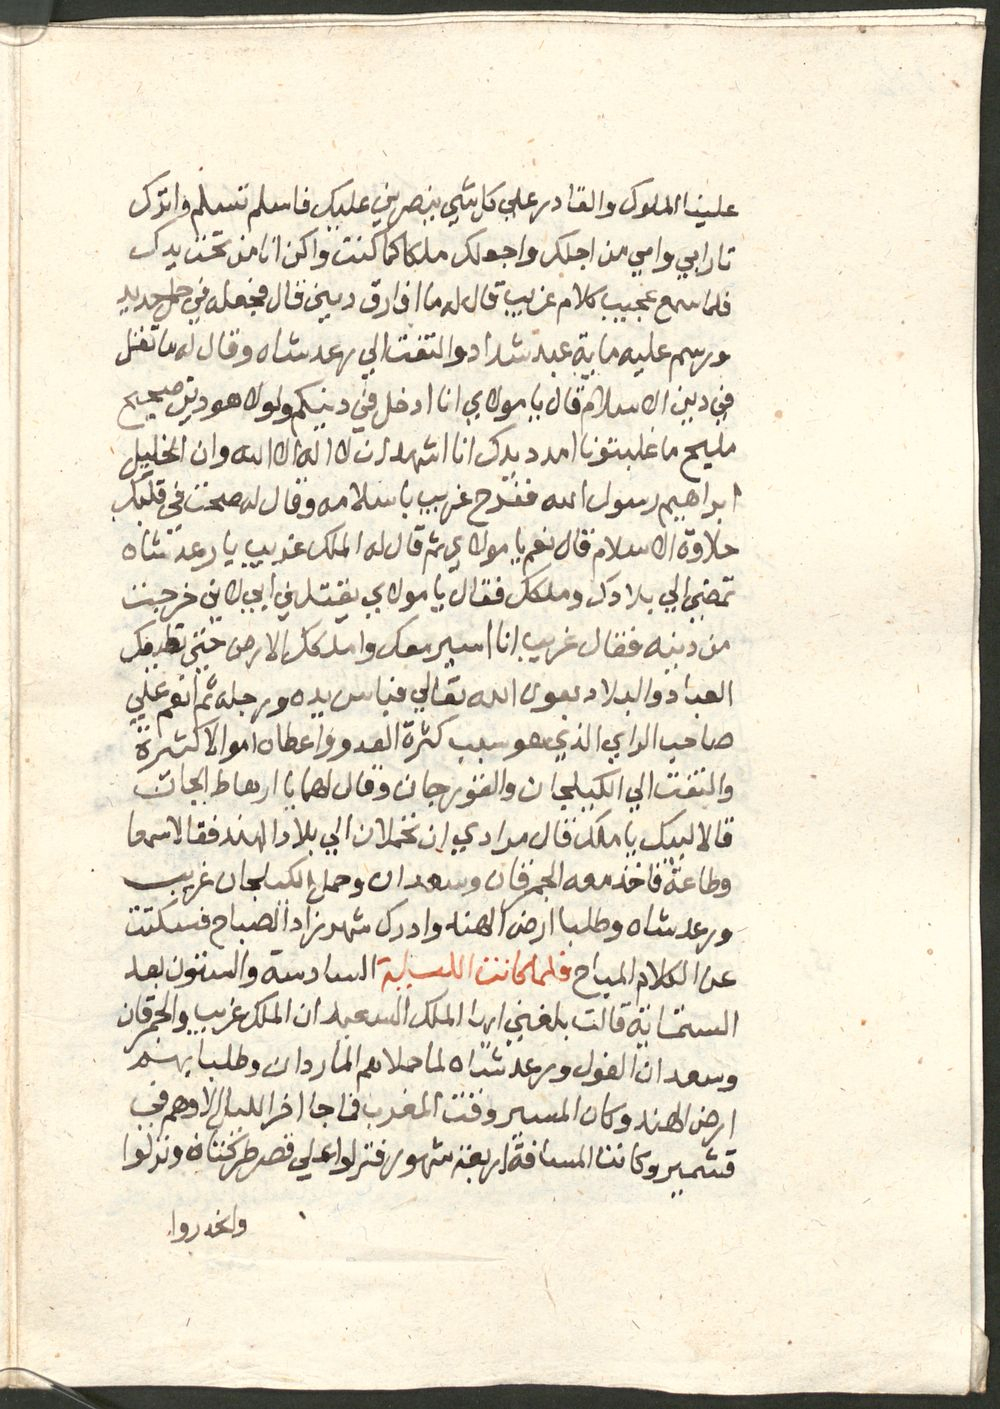 علينا الملوك والقادر علي كل شي ينصرني عليك فاسلم تسلم واترك
تار ابي وامي من اجلك واجعلك ملكا كما كنت واكن انا من تحت يدك
فلما سمع عجيب كلام غريب قال له ما افارق ديني قال فجعله في حمل حديد
ورسم عليه ماية عبد شداد والتفت الي رعد شاه وقال له ما تقل
في دين الاسلام قال يا مولاي انا ادخل في دينكم ولولا هو دين صحيح
مليح ما غلبتونا امدد يدك انا اشهد ان لا اله الا الله وان الخليل
ابراهيم رسول الله ففرح غريب باسلامه وقال له صحت في قلبك
حلاوة الاسلام قال نعم يا مولاي ثم قال له الملك غريب يا رعد شاه
تمضي الي بلادك وملكك فقال يا مولاي يقتلني ابي لاني خرجت
من دينه فقال غريب انا اسير معك واملكك الارض حتي تطيعك
العباد والبلاد بعون الله تعالي فباس يده ورجله ثم انعم علي
صاحب الراي الذي هو سبب كثرة العدو واعطاه اموالا كثيرة
والتفت الي الكيلجان والقورجان وقال لهما يا ارهاط الجان
قالا لبيك يا ملك قال مرادي ان تحملان الي بلاد الهند فقالا سمعا
وطاعة فاخذ معه الجمرقان وسعدان وحمل الكيلجان غريب
ورعد شاه وطلبا ارض الهند وادرك شهرزاد الصباح فسكتت
عن الكلام المباح فلما كانت الليلة السادسة والستون بعد
الستماية قالت بلغني ايها الملك السعيد ان الملك غريب والجمرقان
وسعدان الغول ورعد شاه لما حملاهم الماردان وطلبا بهم
ارض الهند وكان المسير وقت المغرب فما جا اخر الليل الا وهم في
قشمير وكانت المسافة اربعة شهور فنزلوا علي قصر طركنان ونزلوا
وانحدروا